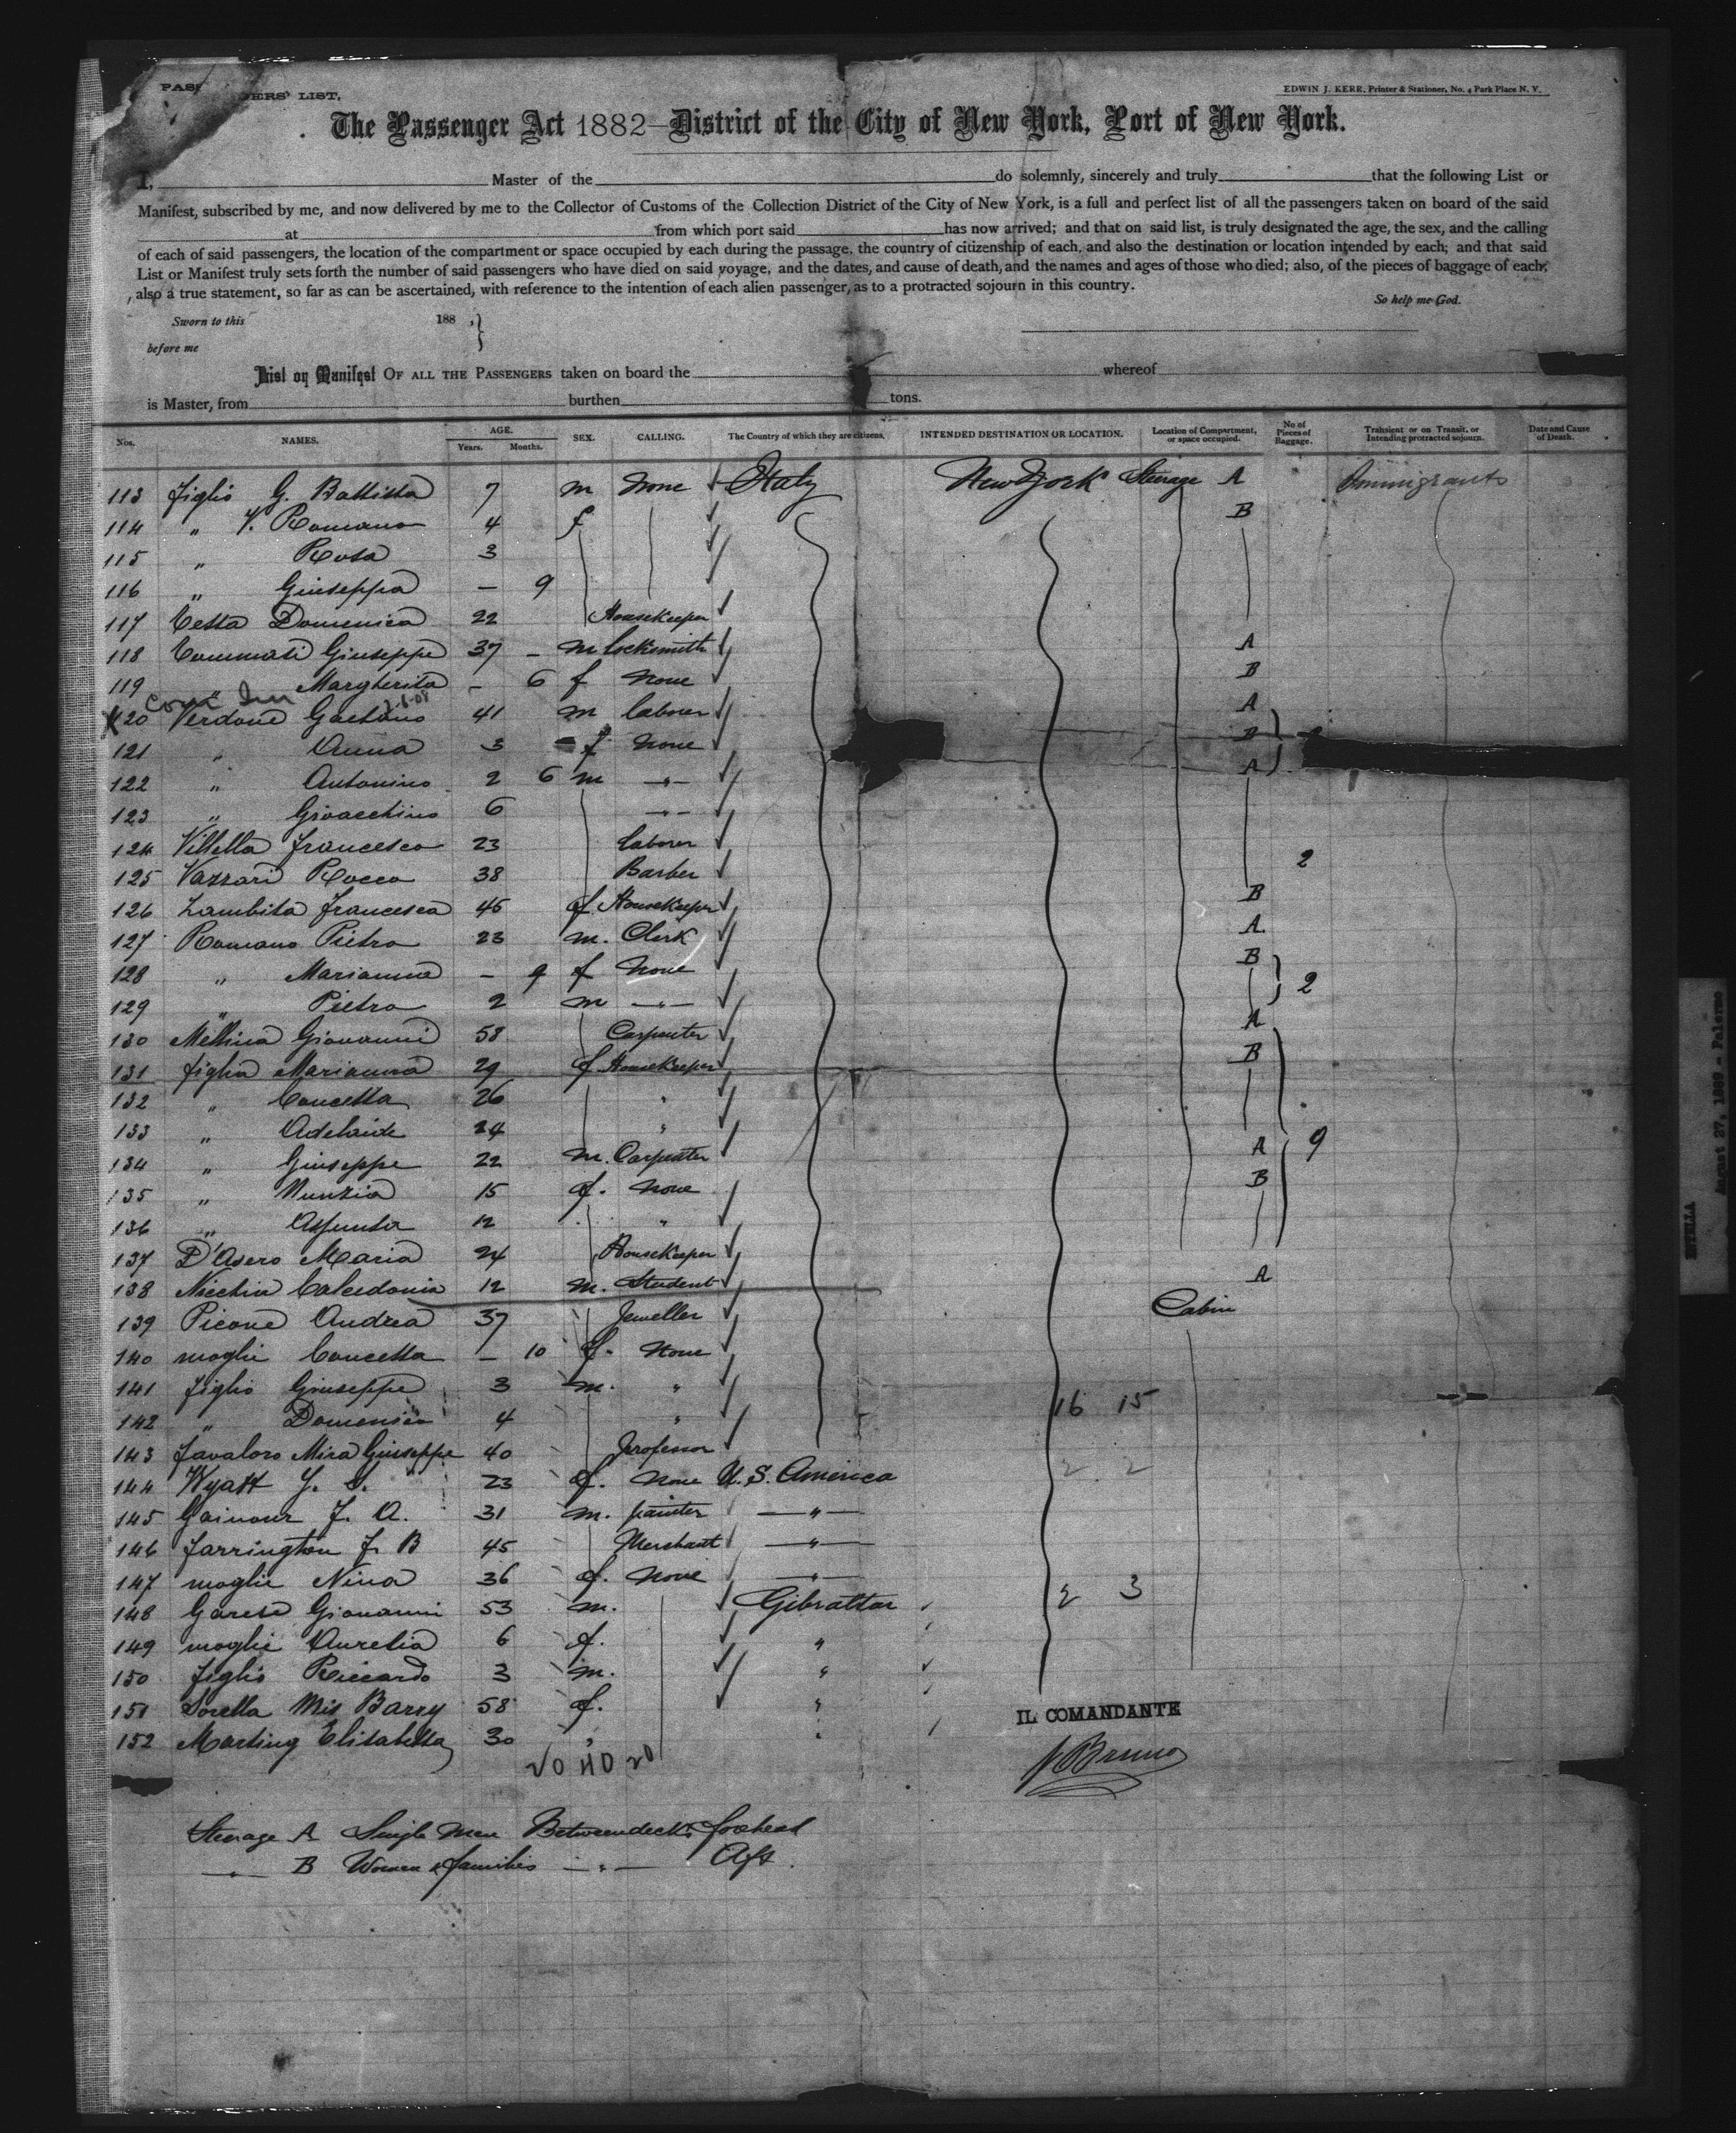 PASS ERS' LIST.
EDWIN J. KERR, Printer & Stationer, No. 4 Park Place N. Y.
The Passenger Act 1882—District of the City of New York, Port of New York.
I, Master of the do solemnly, sincerely and truly that the following List or
Manifest, subscribed by me, and now delivered by me to the Collector of Customs of the Collection District of the City of New York, is a full and perfect list of all the passengers taken on board of the said
at from which port said has now arrived; and that on said list, is truly designated the age, the sex, and the calling
of each of said passengers, the location of the compartment or space occupied by each during the passage, the country of citizenship of each, and also the destination or location intended by each; and that said
List or Manifest truly sets forth the number of said passengers who have died on said voyage, and the dates, and cause of death, and the names and ages of those who died; also, of the pieces of baggage of each;
also a true statement, so far as can be ascertained, with reference to the intention of each alien passenger, as to a protracted sojourn in this country.
So help me God.
Sworn to this 188 ,
before me
List or Manifest OF ALL THE PASSENGERS taken on board the whereof
is Master, from burthen tons.
Nos. NAMES. AGE. Years. Months. SEX. CALLING. The Country of which they are citizens. INTENDED DESTINATION OR LOCATION. Location of Compartment, or space occupied. No of Pieces of Baggage. Transient or on Transit, or Intending protracted sojourn. Date and Cause of Death.
113 figlio G. Battista 7 m None Italy New York Steerage A Immigrants
114 " V. Romano 4 f B
115 " Rosa 3
116 " Giuseppa — 9
117 Testa Domenica 22 Housekeeper
118 Tommasi Giuseppe 37 — m locksmith A
119 " Margherita — 6 f None B
120 Verdone Gaetano 41 m laborer A
121 " Anna 3 f None B
122 " Antonino 2 6 m —"— A
123 " Gioacchino 6 —"—
124 Villella francesco 23 laborer
125 Vazzari Rocco 38 Barber 2
126 Zambita francesca 45 f Housekeeper B
127 Romano Pietro 23 m. Clerk A
128 " Marianna — 9 f None B
129 " Pietro 2 m —"— 2
130 Mellina Giovanni 58 Carpenter A
131 figlia Marianna 29 f Housekeeper B
132 " Concetta 26 "
133 " Adelaide 24 "
134 " Giuseppe 22 m. Carpenter A 9
135 " Nunzia 15 f. None B
136 " Assunta 12 "
137 D'Asero Maria 24 Housekeeper
138 Nicchia Calcedonio 12 m. Student A
139 Picone Andrea 37 Jeweller Cabin
140 moglie Concetta — 10 f. None
141 figlio Giuseppe 3 m. "
142 " Domenico 4 " 16 15
143 Favaloro Mira Giuseppe 40 Professor
144 Wyatt 23 f. None U. S. America 2 2
145 Gainour F. A. 31 m. painter —"—
146 Farrington F. B 45 Merchant —"—
147 moglie Nina 36 f. None —"—
148 Garese Giovanni 53 m. Gibraltar 2 3
149 moglie Aurelia 6 f. "
150 figlio Riccardo 3 m. "
151 Sorella Mis Barry 58 f. "
152 Marting Elisabetta 30 " "
20 40 20
IL COMANDANTE
Bruno
Steerage A Single Men Betweendecks forehead
—"— B Women & families —"— Aft.
ESTELLA August 27, 1889 - Palermo